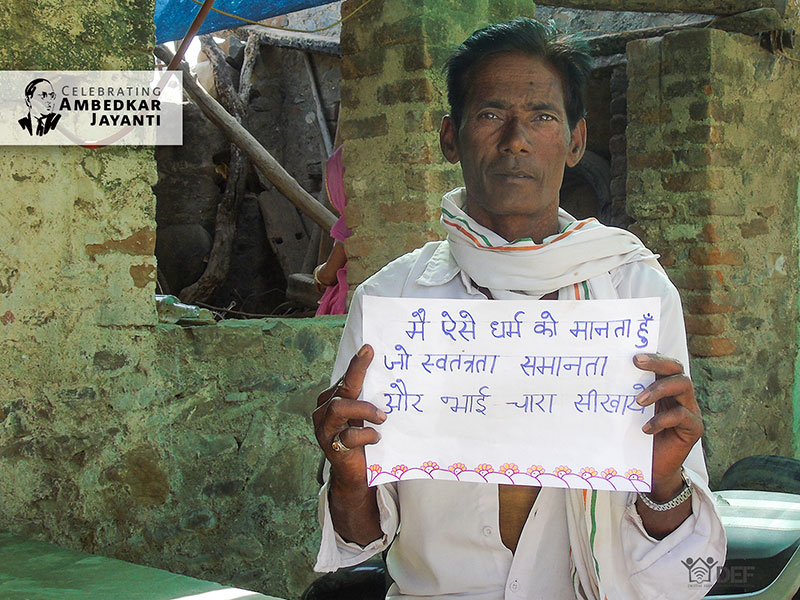 CELEBRATING
AMBEDKAR
JAYANTI
मै ऐसे धर्म को मानता हुँ
जो स्वतंत्रता समानता
और भाई चारा सीखाये
DEF